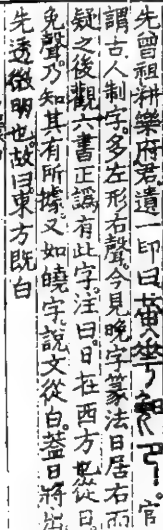 先曾祖耕樂府君遺一印曰黄
謂古人制字多左形右聲今見晚字篆法日居右而
疑之後觀六書正譌有此字注曰日在西方也從日
免聲乃知其有所據又如曉字說文從白蓋日將出
先透微明也故曰東方既白